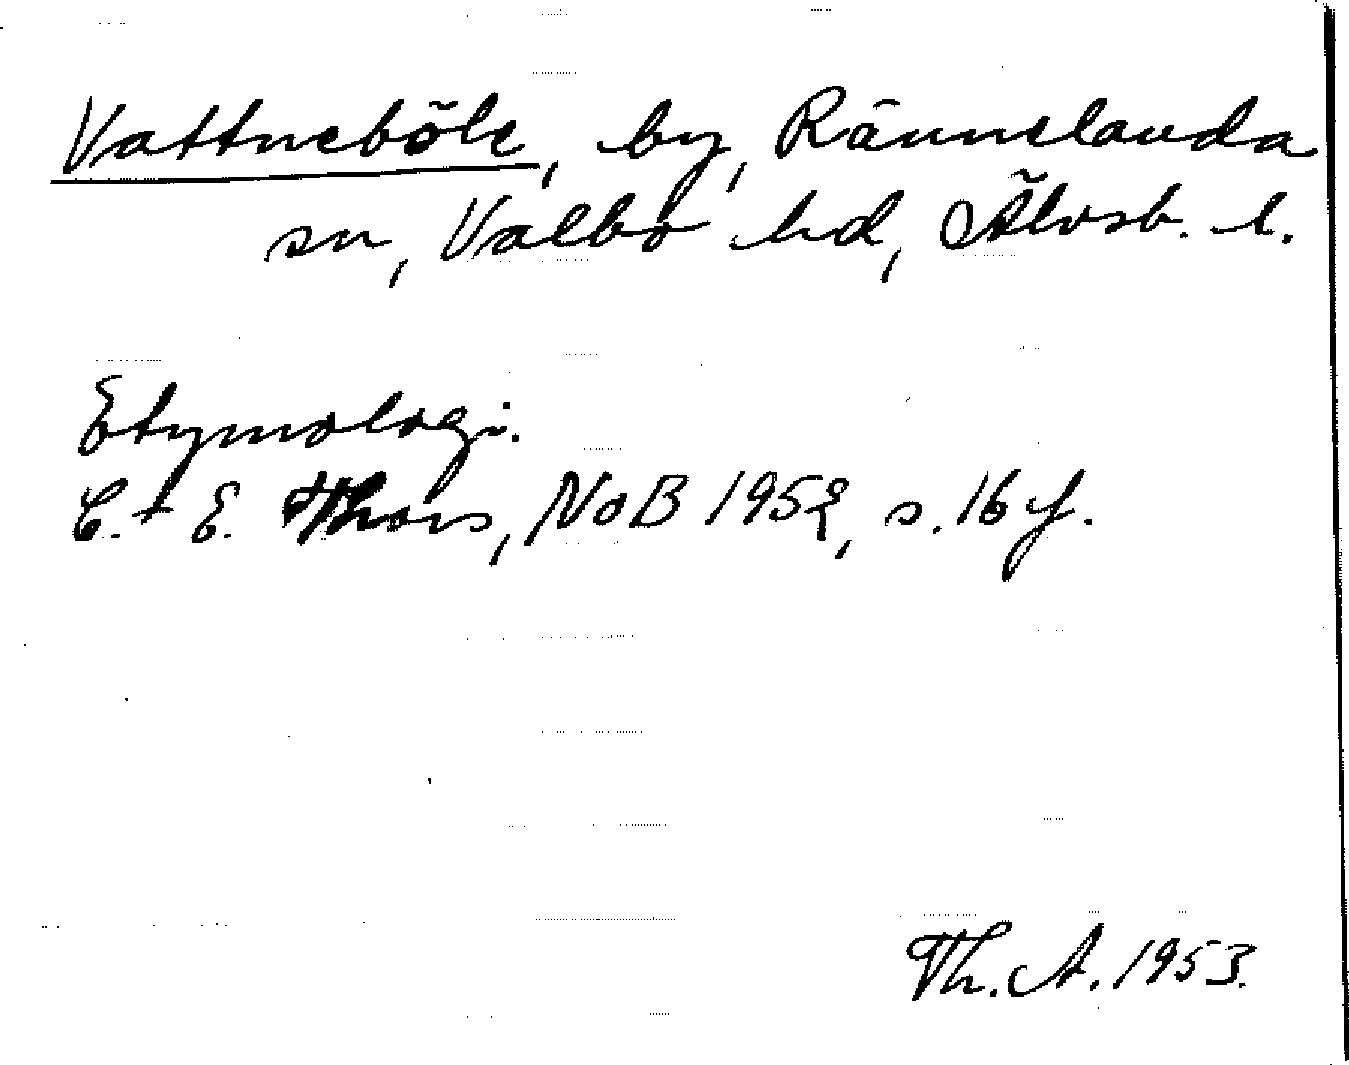 Vattneböle, by, Rännelanda
sn, Valbo hd, Älvsb. l.
Etymologi.
C.-E. Thors, NoB 1952, s. 16 f.
Th. A. 1953.